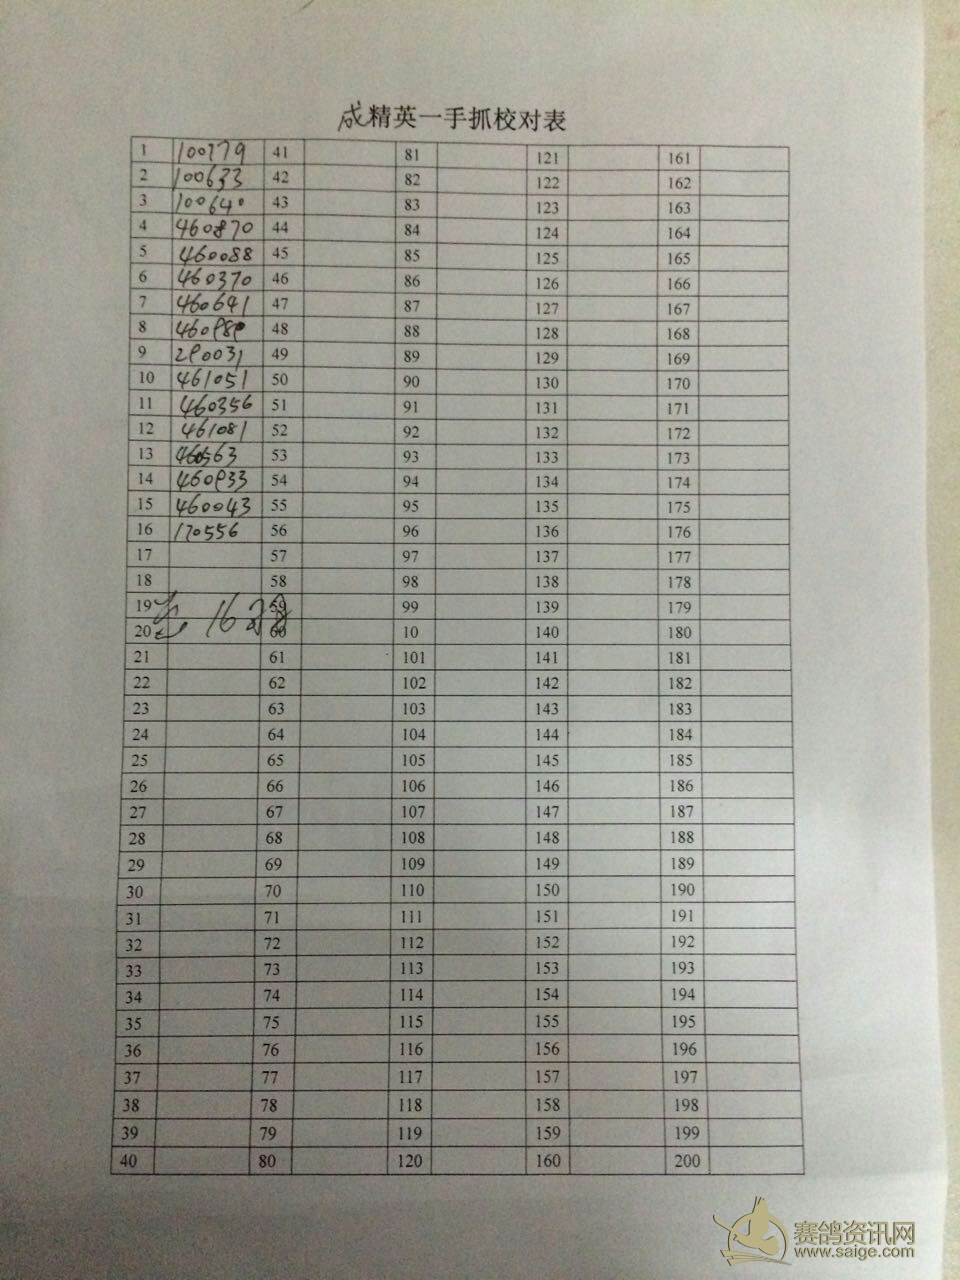 成精英一手抓校对表
1 100379 41 81 121 161
2 100633 42 82 122 162
3 100640 43 83 123 163
4 460870 44 84 124 164
5 460088 45 85 125 165
6 460370 46 86 126 166
7 460641 47 87 127 167
8 48 88 128 168
9 290031 49 89 129 169
10 461051 50 90 130 170
11 460356 51 91 131 171
12 461081 52 92 132 172
13 460563 53 93 133 173
14 460933 54 94 134 174
15 460043 55 95 135 175
16 170556 56 96 136 176
17 57 97 137 177
18 58 98 138 178
19 59 99 139 179
16
20 60 10 140 180
21 61 101 141 181
22 62 102 142 182
23 63 103 143 183
24 64 104 144 184
25 65 105 145 185
26 66 106 146 186
27 67 107 147 187
28 68 108 148 188
29 69 109 149 189
30 70 110 150 190
31 71 111 151 191
32 72 112 152 192
33 73 113 153 193
34 74 114 154 194
35 75 115 155 195
36 76 116 156 196
37 77 117 157 197
38 78 118 158 198
39 79 119 159 199
40 80 120 160 200
赛鸽资讯网
www.saige.com